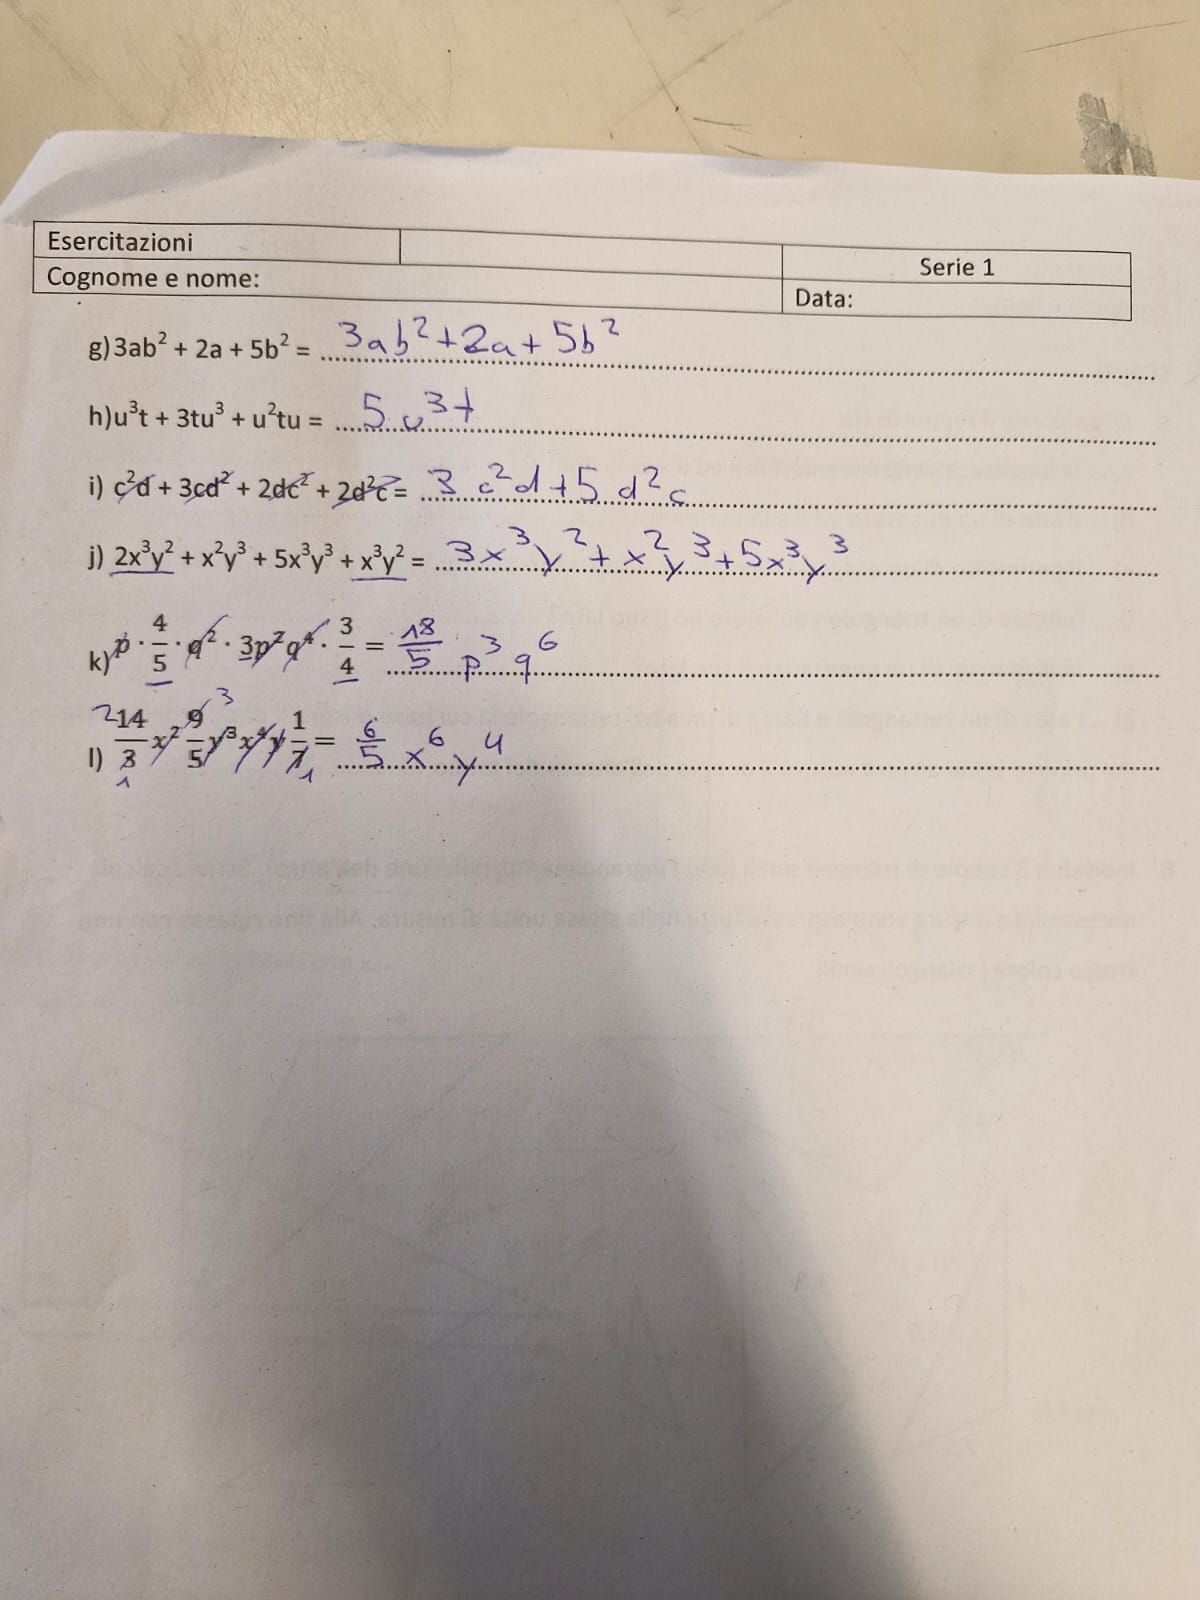 Esercitazioni
Serie 1
Cognome e nome:
Data:
g) 3ab² + 2a + 5b² = 3ab² + 2a + 5b²
h) u³t + 3tu³ + u²tu = 5 u³t
i) c²d + 3cd² + 2dc² + 2d²c = 3 c²d + 5 d²c
j) 2x³y² + x²y³ + 5x³y³ + x³y² = 3x³y² + x²y³ + 5x³y³
k) p · 4/5 · q² · 3p²q⁴ · 3/4 = 18/5 p³ q⁶
l) 2 14/3 1 x² 9/5 3 y³ x⁴ y 1/7 1 = 6/5 x⁶ y⁴